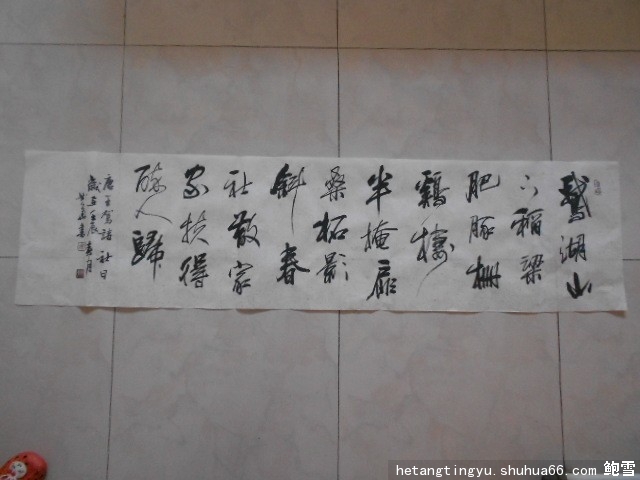 鵞湖山
下稻梁
肥豚柵
鷄棲
半掩扉
桑柘影
斜春
社散家
家扶得
醉人歸
唐王駕詩社日
歲在壬辰春月
hetangtingyu.shuhua66.com 鲍雪